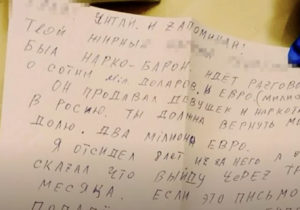 ЧИТАЙ. И ZАПОМИНАЙ:
ТВОЙ ЖИРНЫЙ
БЫЛ НАРКО-БАРОН. ИДЁТ РАЗГОВО
О СОТНИ МІЛ. ДОЛАРОВ, И ЕВРО
ОН ПРОДАВАЛ ДЕВУШЕК И НАРКОТ
В РОСИЮ. ТЫ ДОЛЖНА ВЕРНУТЬ М
ДОЛЮ. ДВА МІЛИОНА ЕВРО.
Я ОТСИДЕЛ 8 ЛЕТ. ИZ ZА НЕГО
СКАZАЛ ЧТО ВЫЙДУ ЧЕРЕZ ТР
МЕСЯЦА. ЕСЛИ ЭТО ПИСЬМО